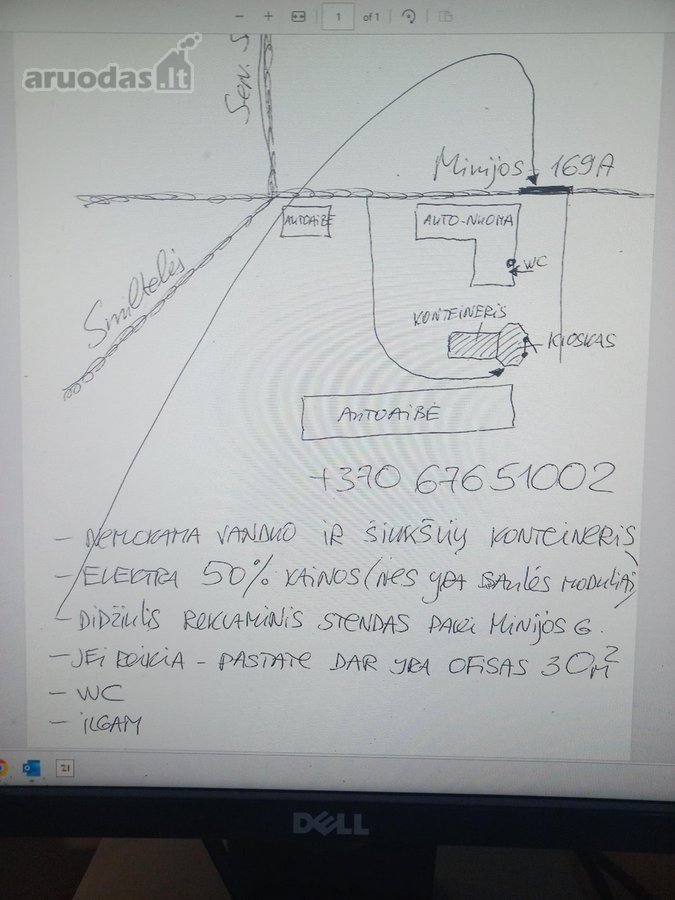 1 of 1
aruodas.lt
Sen. S
Minijos 169A
AUTOAIBĖ
AUTO-NUOMA
WC
Smiltelės
KONTEINERIS
KIOSKAS
AUTOAIBĖ
+370 67651002
- NEMOKAMA VANDUO IR ŠIUKŠLIŲ KONTEINERIS
- ELEKTRA 50% KAINOS (NES YRA SAULĖS MODULIAI)
- DIDŽIULIS REKLAMINIS STENDAS PALEI MINIJOS G.
- JEI REIKIA - PASTATE DAR YRA OFISAS 30 M²
- WC
- ILGAM
21
DELL